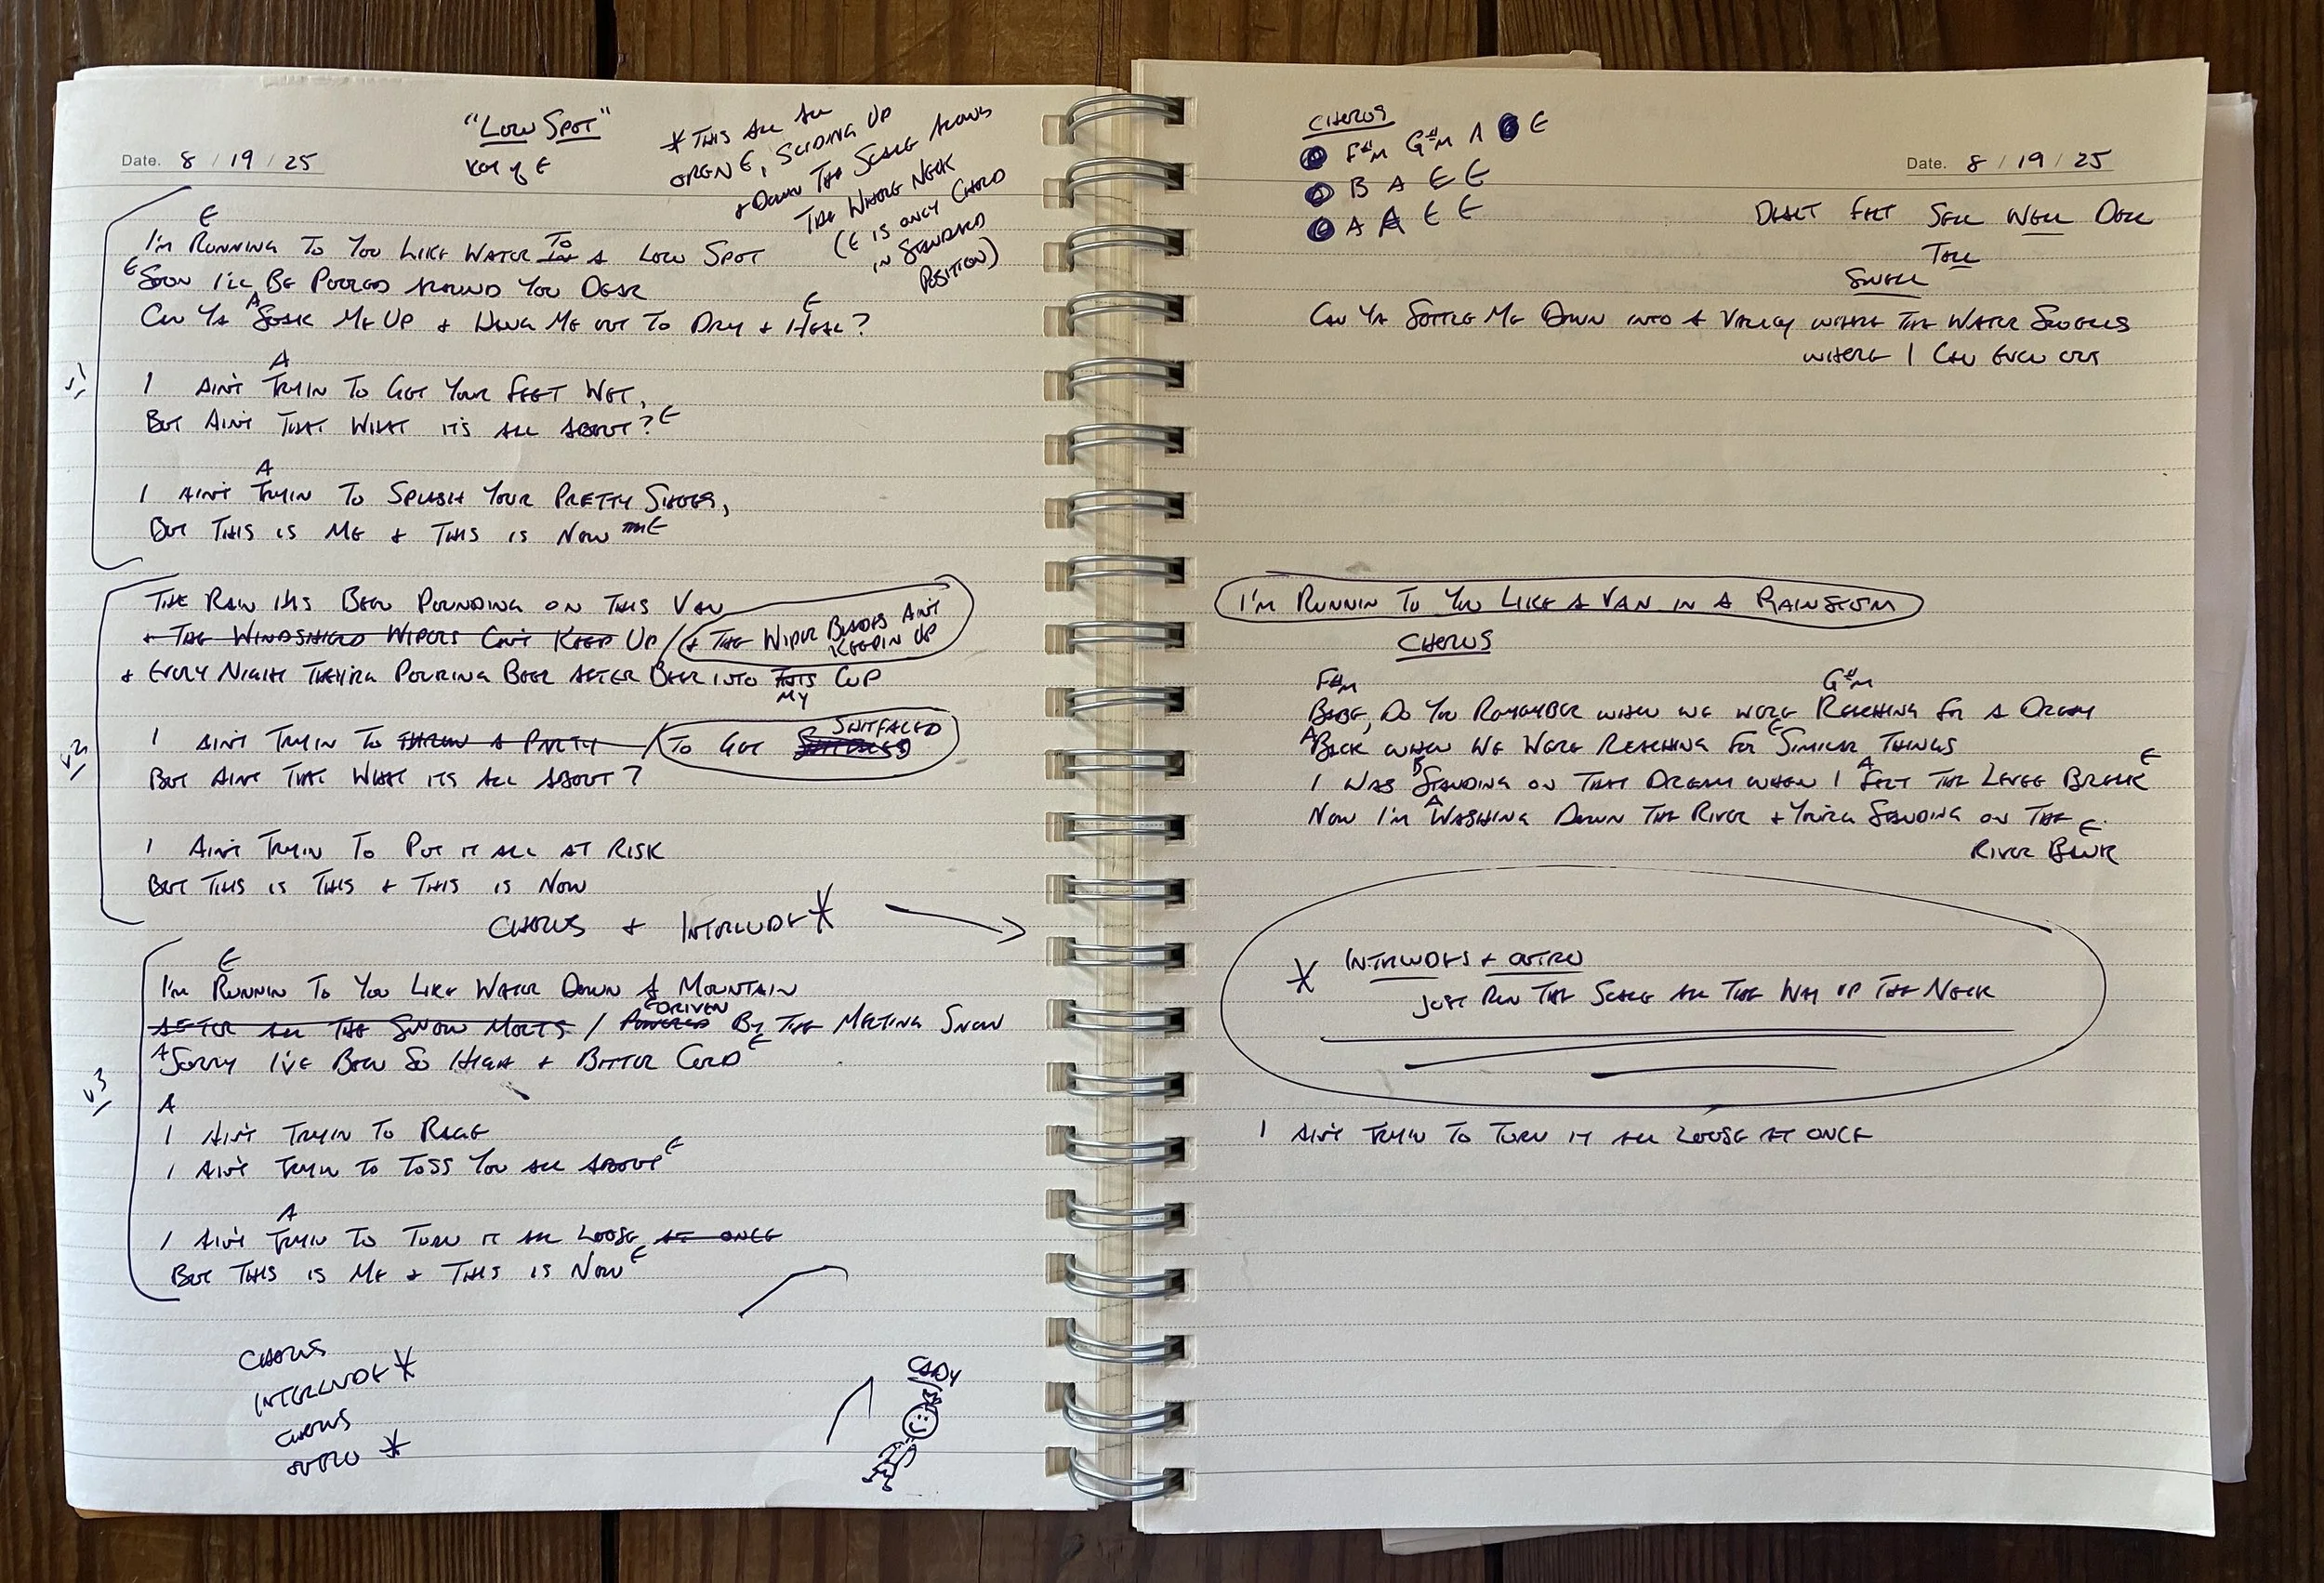 "Low Spot"
Key of E
Date. 8 / 19 / 25
* This all
open E, sliding up
+ down the scale along
the whole neck
(E is only chord
in standard
position)
E
I'm running to you like water to in a low spot
E Soon I'll be pooled around you dear
A E
Can ya soak me up + hang me out to dry + heal?
v1
A
I ain't tryin to get your feet wet,
But ain't that what it's all about? E
A
I ain't tryin to splash your pretty shoes,
But this is me + this is now E
v2
The rain has been pounding on this van
+ the windshield wipers can't keep up / + the wiper blades ain't
keepin up
+ every night they're pouring beer after beer into this cup
my
I ain't tryin to throw a party / to get shitfaced
But aint that what its all about?
I ain't tryin to put it all at risk
But this is this + this is now
Chorus + Interlude *
v3
E
I'm runnin to you like water down a mountain
after all the snow melts / powered driven by the melting snow
A Sorry I've been so high + bitter cold E
A
I ain't tryin to rage
I ain't tryin to toss you all about E
A
I ain't tryin to turn it all loose at once
But this is me + this is now E
Chorus
Interlude *
Chorus
Outro *
Cady
Chorus
F#m G#m A E
B A E E
A A E E
Date. 8 / 19 / 25
Dealt felt sell well dell
tell
swell
Can ya settle me down into a valley where the water swells
where I can even out
I'm runnin to you like a van in a rainstorm
Chorus
F#m G#m
Babe, do you remember when we were reaching for a dream
A Back when we were reaching for E similar things
B A E
I was standing on that dream when I felt the levee break
A
Now I'm washing down the river + you're standing on the
E
river bank
* Interludes + outro
just run the scale all the way up the neck
I ain't tryin to turn it all loose at once